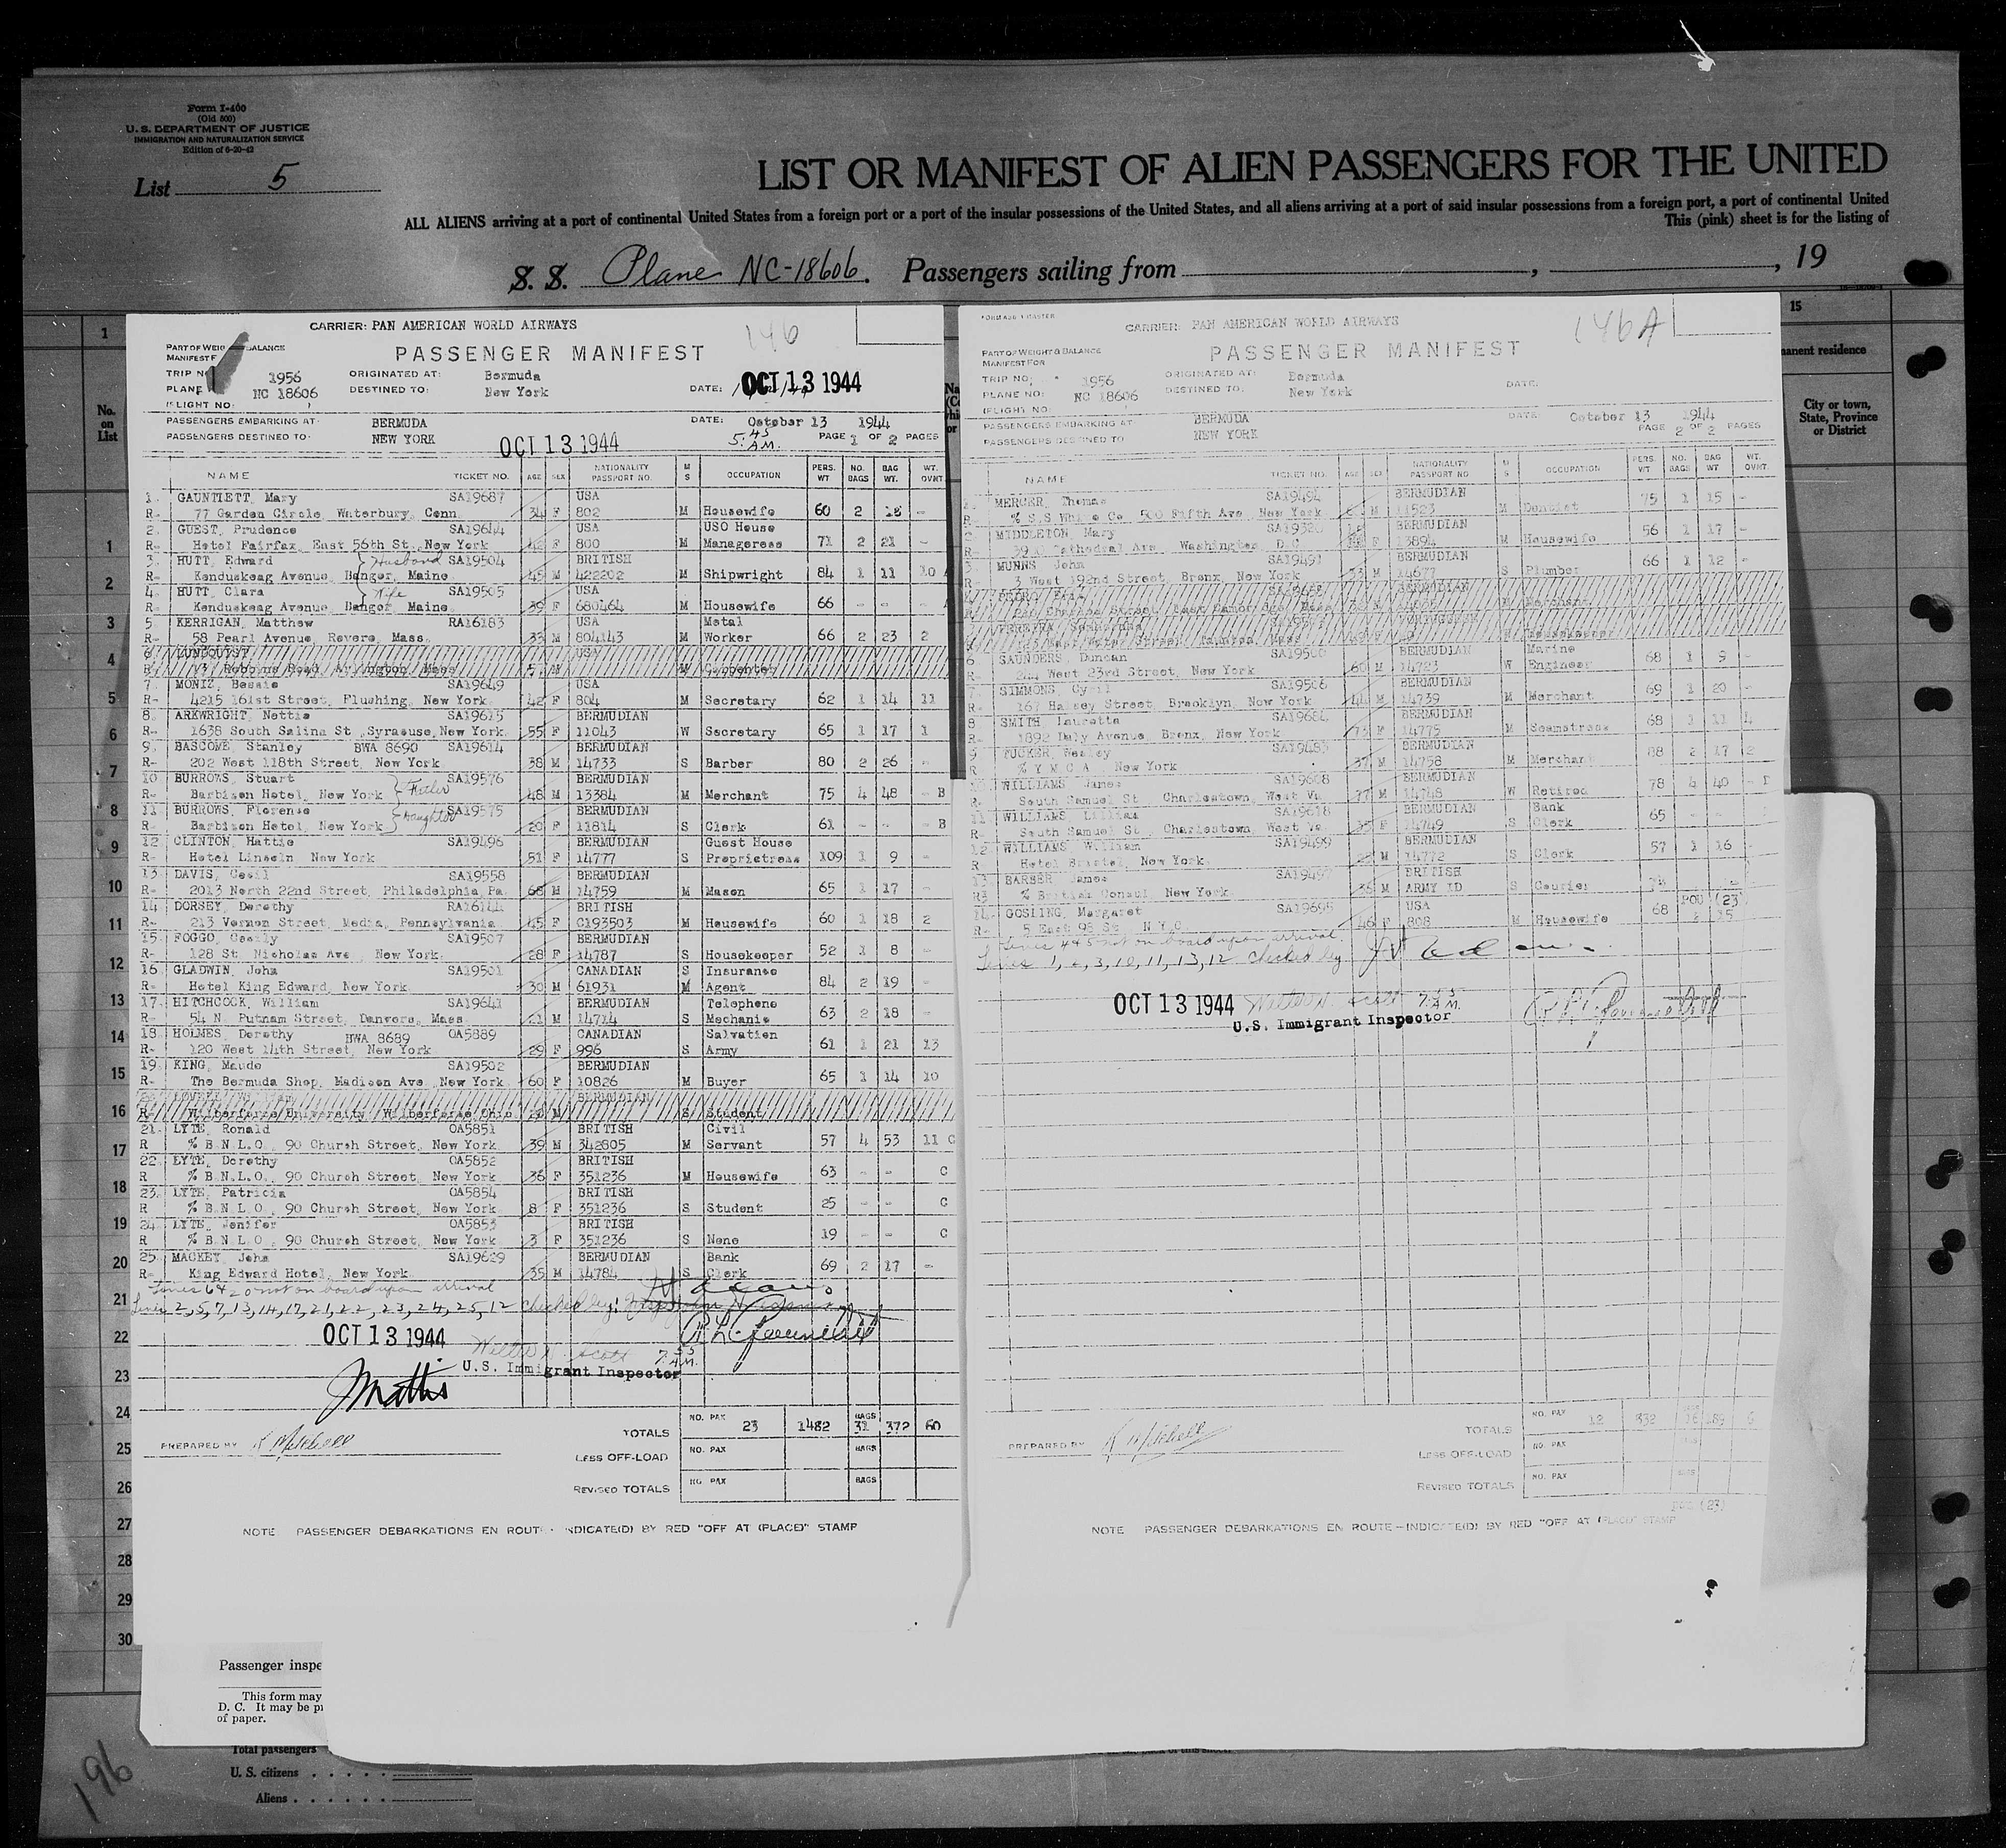 Form I-460
(Old 500)
U. S. DEPARTMENT OF JUSTICE
IMMIGRATION AND NATURALIZATION SERVICE
Edition of 6-20-42
List 5
LIST OR MANIFEST OF ALIEN PASSENGERS FOR THE UNITED
ALL ALIENS arriving at a port of continental United States from a foreign port or a port of the insular possessions of the United States, and all aliens arriving at a port of said insular possessions from a foreign port, a port of continental United
This (pink) sheet is for the listing of
S. S. Plane NC-18606. Passengers sailing from , , 19
1
No.
on
List
CARRIER: PAN AMERICAN WORLD AIRWAYS
146
PASSENGER MANIFEST
TRIP NO 1956 ORIGINATED AT: Bermuda
NC 18606 DESTINED TO: New York DATE: OCT 13 1944
PASSENGERS EMBARKING AT: BERMUDA DATE: October 13 1944
PASSENGERS DESTINED TO: NEW YORK OCT 13 1944 5.45 A.M. PAGE 1 OF 2 PAGES
NAME TICKET NO. AGE SEX NATIONALITY PASSPORT NO. M S OCCUPATION PERS. WT NO. BAGS BAG WT. WT. OVNT
1. GAUNTLETT, Mary SA19687 USA
R- 77 Garden Circle, Waterbury, Conn. 34 F 802 M Housewife 60 2 18 -
2. GUEST, Prudence SA19644 USA USO House
R- Hotel Fairfax, East 56th St., New York 42 F 800 M Manageress 71 2 21 -
3. HUTT, Edward Husband SA19504 BRITISH
R- Kenduskeag Avenue, Bangor, Maine 45 M 422202 M Shipwright 84 1 11 10
4. HUTT, Clara Wife SA19505 USA
R- Kenduskeag Avenue, Bangor, Maine 39 F 680464 M Housewife 66 - - -
5. KERRIGAN, Matthew RA16183 USA Metal
R- 58 Pearl Avenue, Revere, Mass. 33 M 804143 M Worker 66 2 23 2
6. LUNDQUIST USA
R- Robbins Road, Arlington, Mass M M Carpenter
7. MONIZ, Bessie SA19649 USA
R- 4215 161st Street, Flushing, New York 42 F 804 M Secretary 62 1 14 11
8. ARKWRIGHT, Nettie SA19615 BERMUDIAN
R- 1638 South Salina St., Syracuse, New York. 55 F 11043 W Secretary 65 1 17 1
9. BASCOME, Stanley BWA 8690 SA19614 BERMUDIAN
R- 202 West 118th Street, New York. 38 M 14733 S Barber 80 2 26 -
10 BURROWS, Stuart Father SA19576 BERMUDIAN
R- Barbizon Hotel, New York 48 M 13384 M Merchant 75 4 48 - B
11 BURROWS, Florence Daughter SA19575 BERMUDIAN
R- Barbizon Hotel, New York 20 F 11814 S Clerk 61 - - - B
12 CLINTON, Hattie SA19496 BERMUDIAN Guest House
R- Hotel Lincoln New York 51 F 14777 S Proprietress 109 1 9 -
13 DAVIS, Cecil SA19558 BERMUDIAN
R- 2013 North 22nd Street, Philadelphia, Pa. 68 M 14759 M Mason 65 1 17 -
14. DORSEY, Dorothy RA16144 BRITISH
R- 213 Vernon Street, Media, Pennsylvania 45 F C193503 M Housewife 60 1 18 2
15. FOGGO, Cecily SA19507 BERMUDIAN
R- 128 St. Nicholas Ave., New York. 28 F 14787 S Housekeeper 52 1 8 -
16. GLADWIN, John SA19501 CANADIAN S Insurance
R- Hotel King Edward, New York. 30 M 61931 M Agent 84 2 19 -
17. HITCHCOCK, William SA19641 BERMUDIAN Telephone
R- 54 N. Putnam Street, Danvers, Mass. 21 M 14714 S Mechanic 63 2 18 -
18. HOLMES, Dorothy BWA 8689 OA5889 CANADIAN Salvation
R- 120 West 14th Street, New York 29 F 996 S Army 61 1 21 13
19. KING, Maude SA19502 BERMUDIAN
R- The Bermuda Shop, Madison Ave., New York. 60 F 10826 M Buyer 65 1 14 10
BERMUDIAN
R- Wilberforce University, Wilberforce, Ohio M S Student
21. LYTE, Ronald OA5851 BRITISH Civil
R % B.N.L.O., 90 Church Street, New York 39 M 342805 M Servant 57 4 53 11 C
22. LYTE, Dorothy OA5852 BRITISH
R % B.N.L.O., 90 Church Street, New York 36 F 351236 M Housewife 63 - - C
23. LYTE, Patricia OA5854 BRITISH
R % B.N.L.O., 90 Church Street, New York 8 F 351236 S Student 25 - - C
24. LYTE, Jenifer OA5853 BRITISH
R % B.N.L.O., 90 Church Street, New York 3 F 351236 S None 19 - - C
25. MACKEY, John SA19629 BERMUDIAN Bank
R- King Edward Hotel, New York 35 M 14784 S Clerk 69 2 17 -
Lines 6 & 20 not on board upon arrival
Lines 2, 5, 7, 13, 14, 17, 21, 22, 23, 24, 25, 12 checked by:
OCT 13 1944 Walter N. Scott 7.55 A.M.
U.S. Immigrant Inspector
Mattis
TOTALS NO. PAX 23 1482 BAGS 31 372 60
PREPARED BY R Mitchell
LESS OFF-LOAD NO. PAX BAGS
REVISED TOTALS NO. PAX BAGS
NOTE PASSENGER DEBARKATIONS EN ROUTE - INDICATE(D) BY RED "OFF AT (PLACE)" STAMP
CARRIER: PAN AMERICAN WORLD AIRWAYS
146A
PASSENGER MANIFEST
PART OF WEIGHT & BALANCE
MANIFEST FOR
TRIP NO: 1956 ORIGINATED AT: Bermuda
PLANE NO: NC 18606 DESTINED TO: New York DATE:
(FLIGHT NO.
PASSENGERS EMBARKING AT BERMUDA DATE: October 13 1944
PASSENGERS DESTINED TO NEW YORK PAGE 2 OF 2 PAGES
NAME TICKET NO. AGE SEX NATIONALITY PASSPORT NO M S OCCUPATION PERS. WT NO. BAGS BAG WT WT. OVNT.
MERCER, Thomas SA19494 BERMUDIAN
R- % S.S. White Co. 500 Fifth Ave. New York M 11523 M Dentist 75 1 15 -
MIDDLETON, Mary BERMUDIAN
Cathedral Ave. Washington, D.C. F 13894 M Housewife 56 1 17 -
MUNNS, John SA19491 BERMUDIAN
R- 3 West 192nd Street, Bronx, New York M 14677 S Plumber 66 1 12 -
6 SAUNDERS, Duncan BERMUDIAN Marine
R- West 23rd Street, New York 60 M 14723 W Engineer 68 1 9 -
7. SIMMONS, Cyril SA19506 BERMUDIAN
R- 167 Halsey Street, Brooklyn, New York 44 M 14739 M Merchant 69 1 20 -
8 SMITH, Lauretta SA19684 BERMUDIAN
R- 1892 Daly Avenue, Bronx, New York 73 F 14775 M Seamstress 68 1 11 4
9 TUCKER, Wesley BERMUDIAN
R % Y.M.C.A., New York 37 M 14758 M Merchant 88 2 17 2
10 WILLIAMS, James SA19608 BERMUDIAN
R- South Samuel St., Charlestown, West Va 77 M 14748 W Retired 78 4 40 -
11 WILLIAMS, Lillian SA19618 BERMUDIAN Bank
R- South Samuel St., Charlestown, West Va. F 14749 S Clerk 65 - -
12 WILLIAMS, William SA19499 BERMUDIAN
R Hotel Bristol, New York 23 M 14772 S Clerk 57 1 16 -
13 BARBER, James BRITISH
R % British Consul, New York 36 M ARMY ID S Courier
14. GOSLING, Margaret SA19695 USA POU (23)
R- 5 East 98 St., N.Y.C. 46 F 808 M Housewife 68 1 15
Lines 4 & 5 not on board upon arrival.
Lines 1, 2, 3, 10, 11, 13, 12 checked by
OCT 13 1944 Walter N. Scott 7.55 A.M.
U.S. Immigrant Inspector
TOTALS NO. PAX 12 832 16 189 6
PREPARED BY R Mitchell
LESS OFF-LOAD NO. PAX
REVISED TOTALS NO. PAX
(23)
NOTE PASSENGER DEBARKATIONS EN ROUTE - INDICATE(D) BY RED "OFF AT (PLACE)" STAMP
15
manent residence
City or town,
State, Province
or District
1
2
3
4
5
6
7
8
9
10
11
12
13
14
15
16
17
18
19
20
21
22
23
24
25
26
27
28
29
30
Passenger inspe
This form may
D. C. It may be pr
of paper.
Total passengers
U. S. citizens
Aliens
196